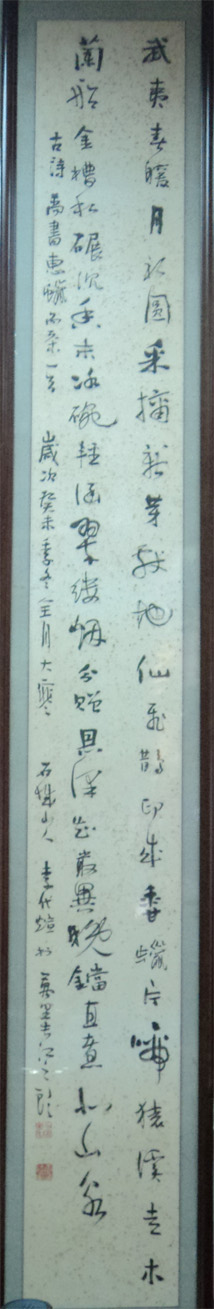 武夷春暖月初圓采摘新芽献地仙飛鵲印成香蠟片啼猿溪走木
蘭船金槽和碾沉香末冰碗輕涵翠縷烟分贈恩深知最異晚鐺宜煮北山泉
古詩尚書惠蠟面茶一首 歲次癸未季冬月大寒 石城山人李代煊